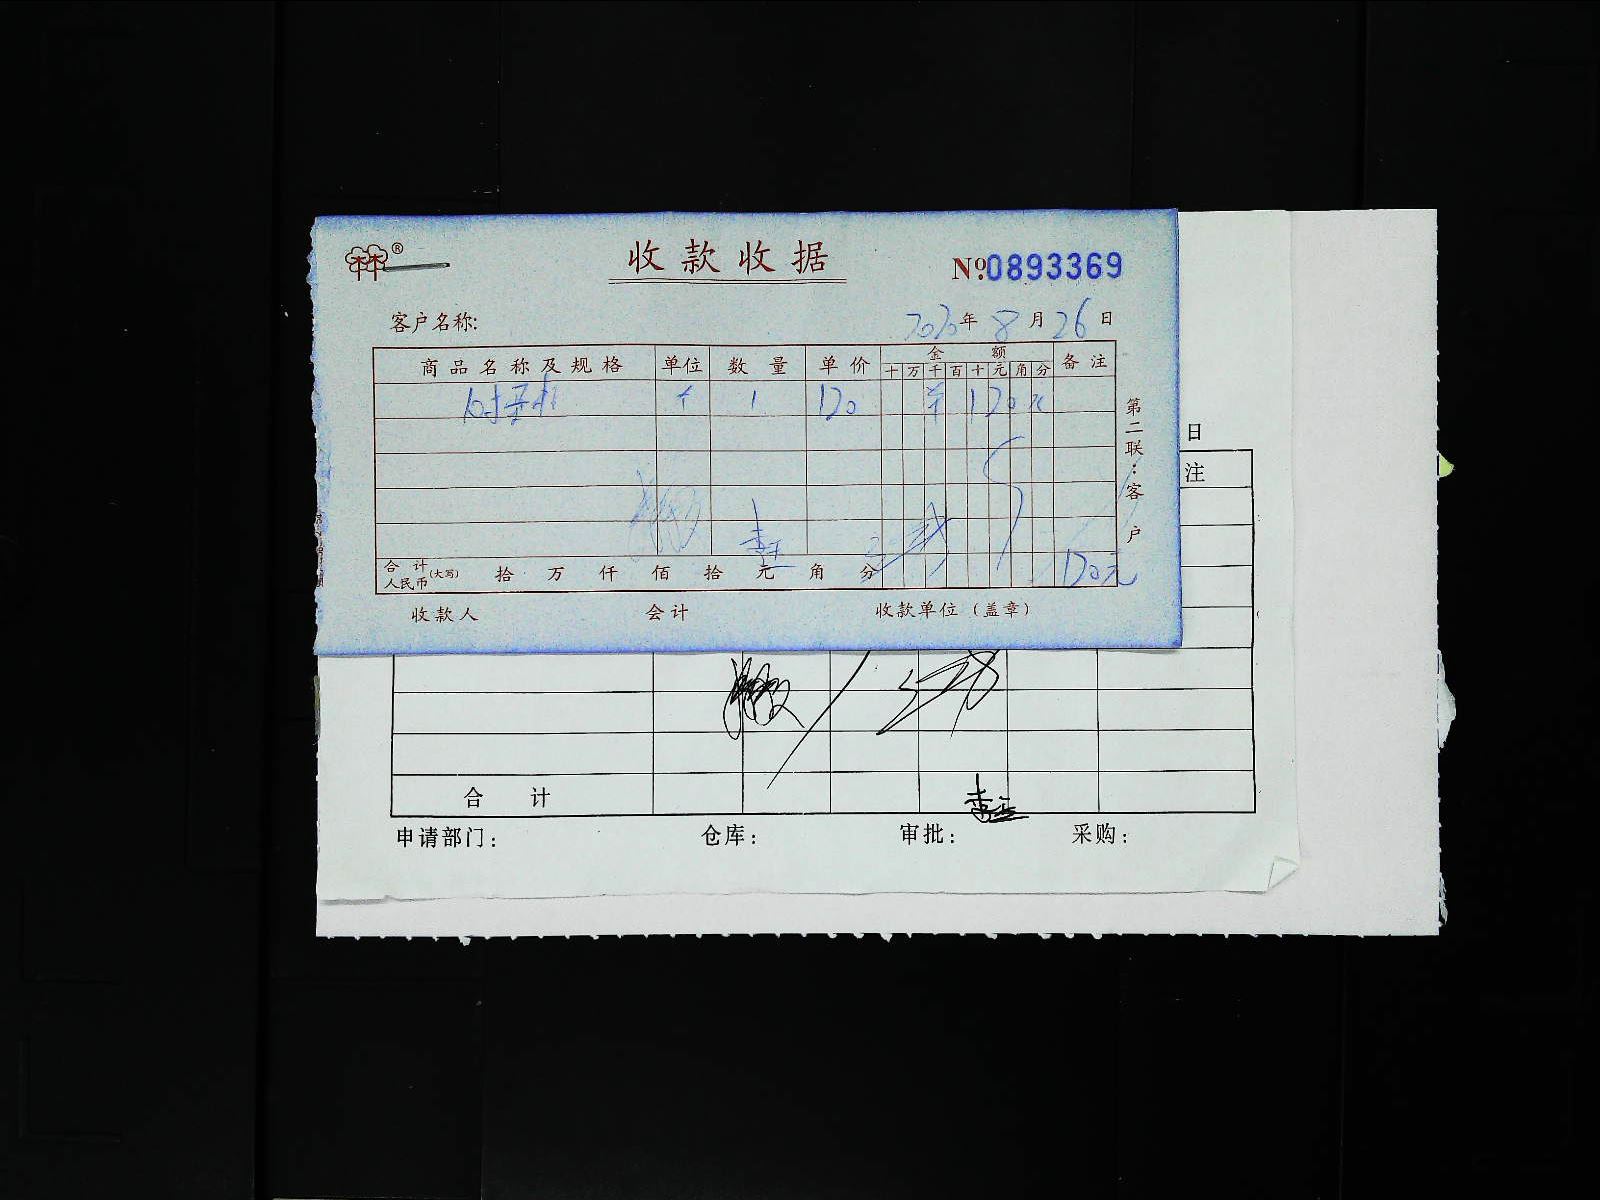 ®
收款收据
№0893369
客户名称:
2020年 8月 26日
商品名称及规格 单位 数量 单价 金额 备注
十 万 千 百 十 元 角 分
个 1 120 ¥ 120 元
第二联:客户
合计人民币(大写) 拾 万 仟 佰 拾 元 角 分 120元
收款人 会计 收款单位(盖章)
日
注
合计
申请部门: 仓库: 审批: 采购: